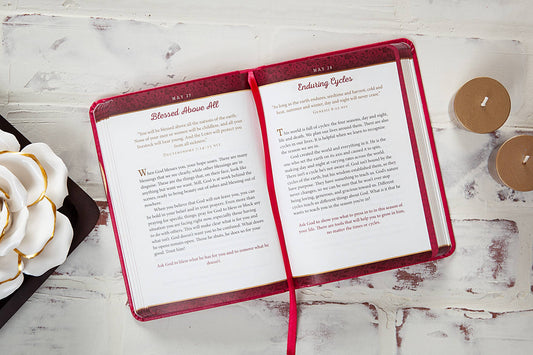 MAY 27
Blessed Above All
"You will be blessed above all the nations of the earth.
None of your men or women will be childless, and all your
livestock will bear young. And the LORD will protect you
from all sickness."
DEUTERONOMY 7:14–15 NLT
When God blesses you, your hope soars. There are many
blessings that we see clearly, while other blessings are in
disguise. These are the things that, on their face, look like
anything but want we want. Still, God is at work behind the
scenes, ready to bring beauty out of ashes and blessing out
of barren.
When you believe that God will not leave you, you can
be bold in your belief and in your prayers. Even more than
specific things, pray for God to bless or block any
situation you are facing right now, especially those having
to do with others. This will make clear what is for you and
what isn't. God doesn't want you to be confused. What doors
he opens remain open. Those he shuts, he does so for your
good. Trust him!
Ask God to bless what he has for you and to remove what he
doesn't.
MAY 28
Enduring Cycles
"As long as the earth endures, seedtime and harvest, cold and
heat, summer and winter, day and night will never cease."
GENESIS 8:22 NIV
This world is full of cycles: the four seasons, day and night,
life and death. We plan our lives around them. There are also
cycles in our lives. It is helpful when we learn to recognize
the season we are in.
God created the world and everything in it. He is the
one who set the earth on its axis and caused it to spin,
making day and night at varying rates across the world.
There isn't a cycle he's not aware of. God isn't bound by the
cycles of the earth, but he seldom works outside of them; they
have purpose. They have something to teach us. God's nature
being loving, generous, and gracious toward us. Different
cycles teach us different things about God. What is it that he
wants to teach you in the season you're in?
Ask God to show you what to press in to in this season of
your life. There are tools that will help you to grow in him,
no matter the times or cycle.